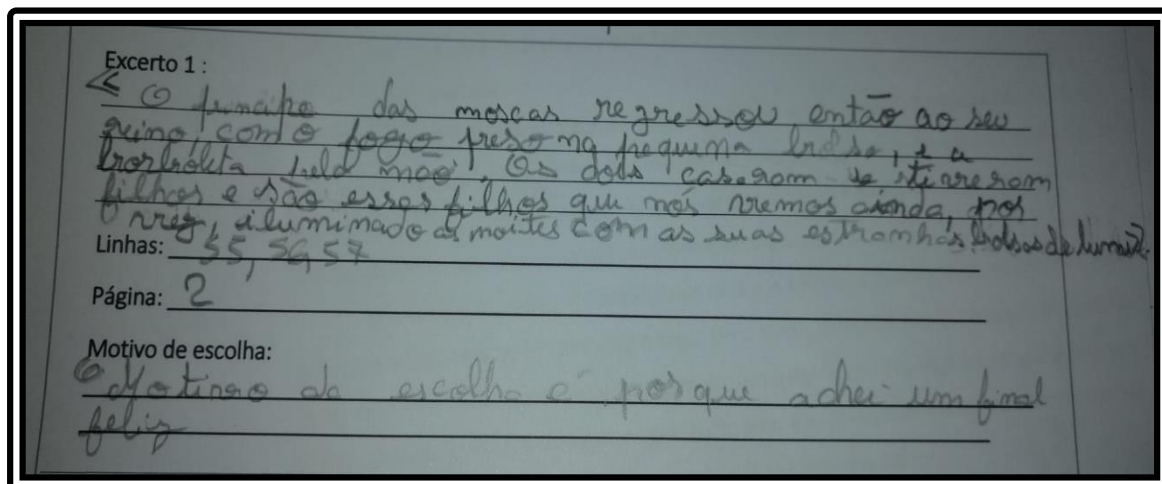 Excerto 1 :
« O principe das moscas regressou então ao seu
reino, com o fogo preso na pequena bolsa, e a
borboleta pela mão. Os dois casarom e tiverom
filhos e são esses filhos que nós vemos ainda, por
vez, iluminado as noites com as suas estranhas bolsas de lumi
Linhas: 55, 56, 57
Página: 2
Motivo de escolha:
O Motivo da escolha é porque achei um final
feliz